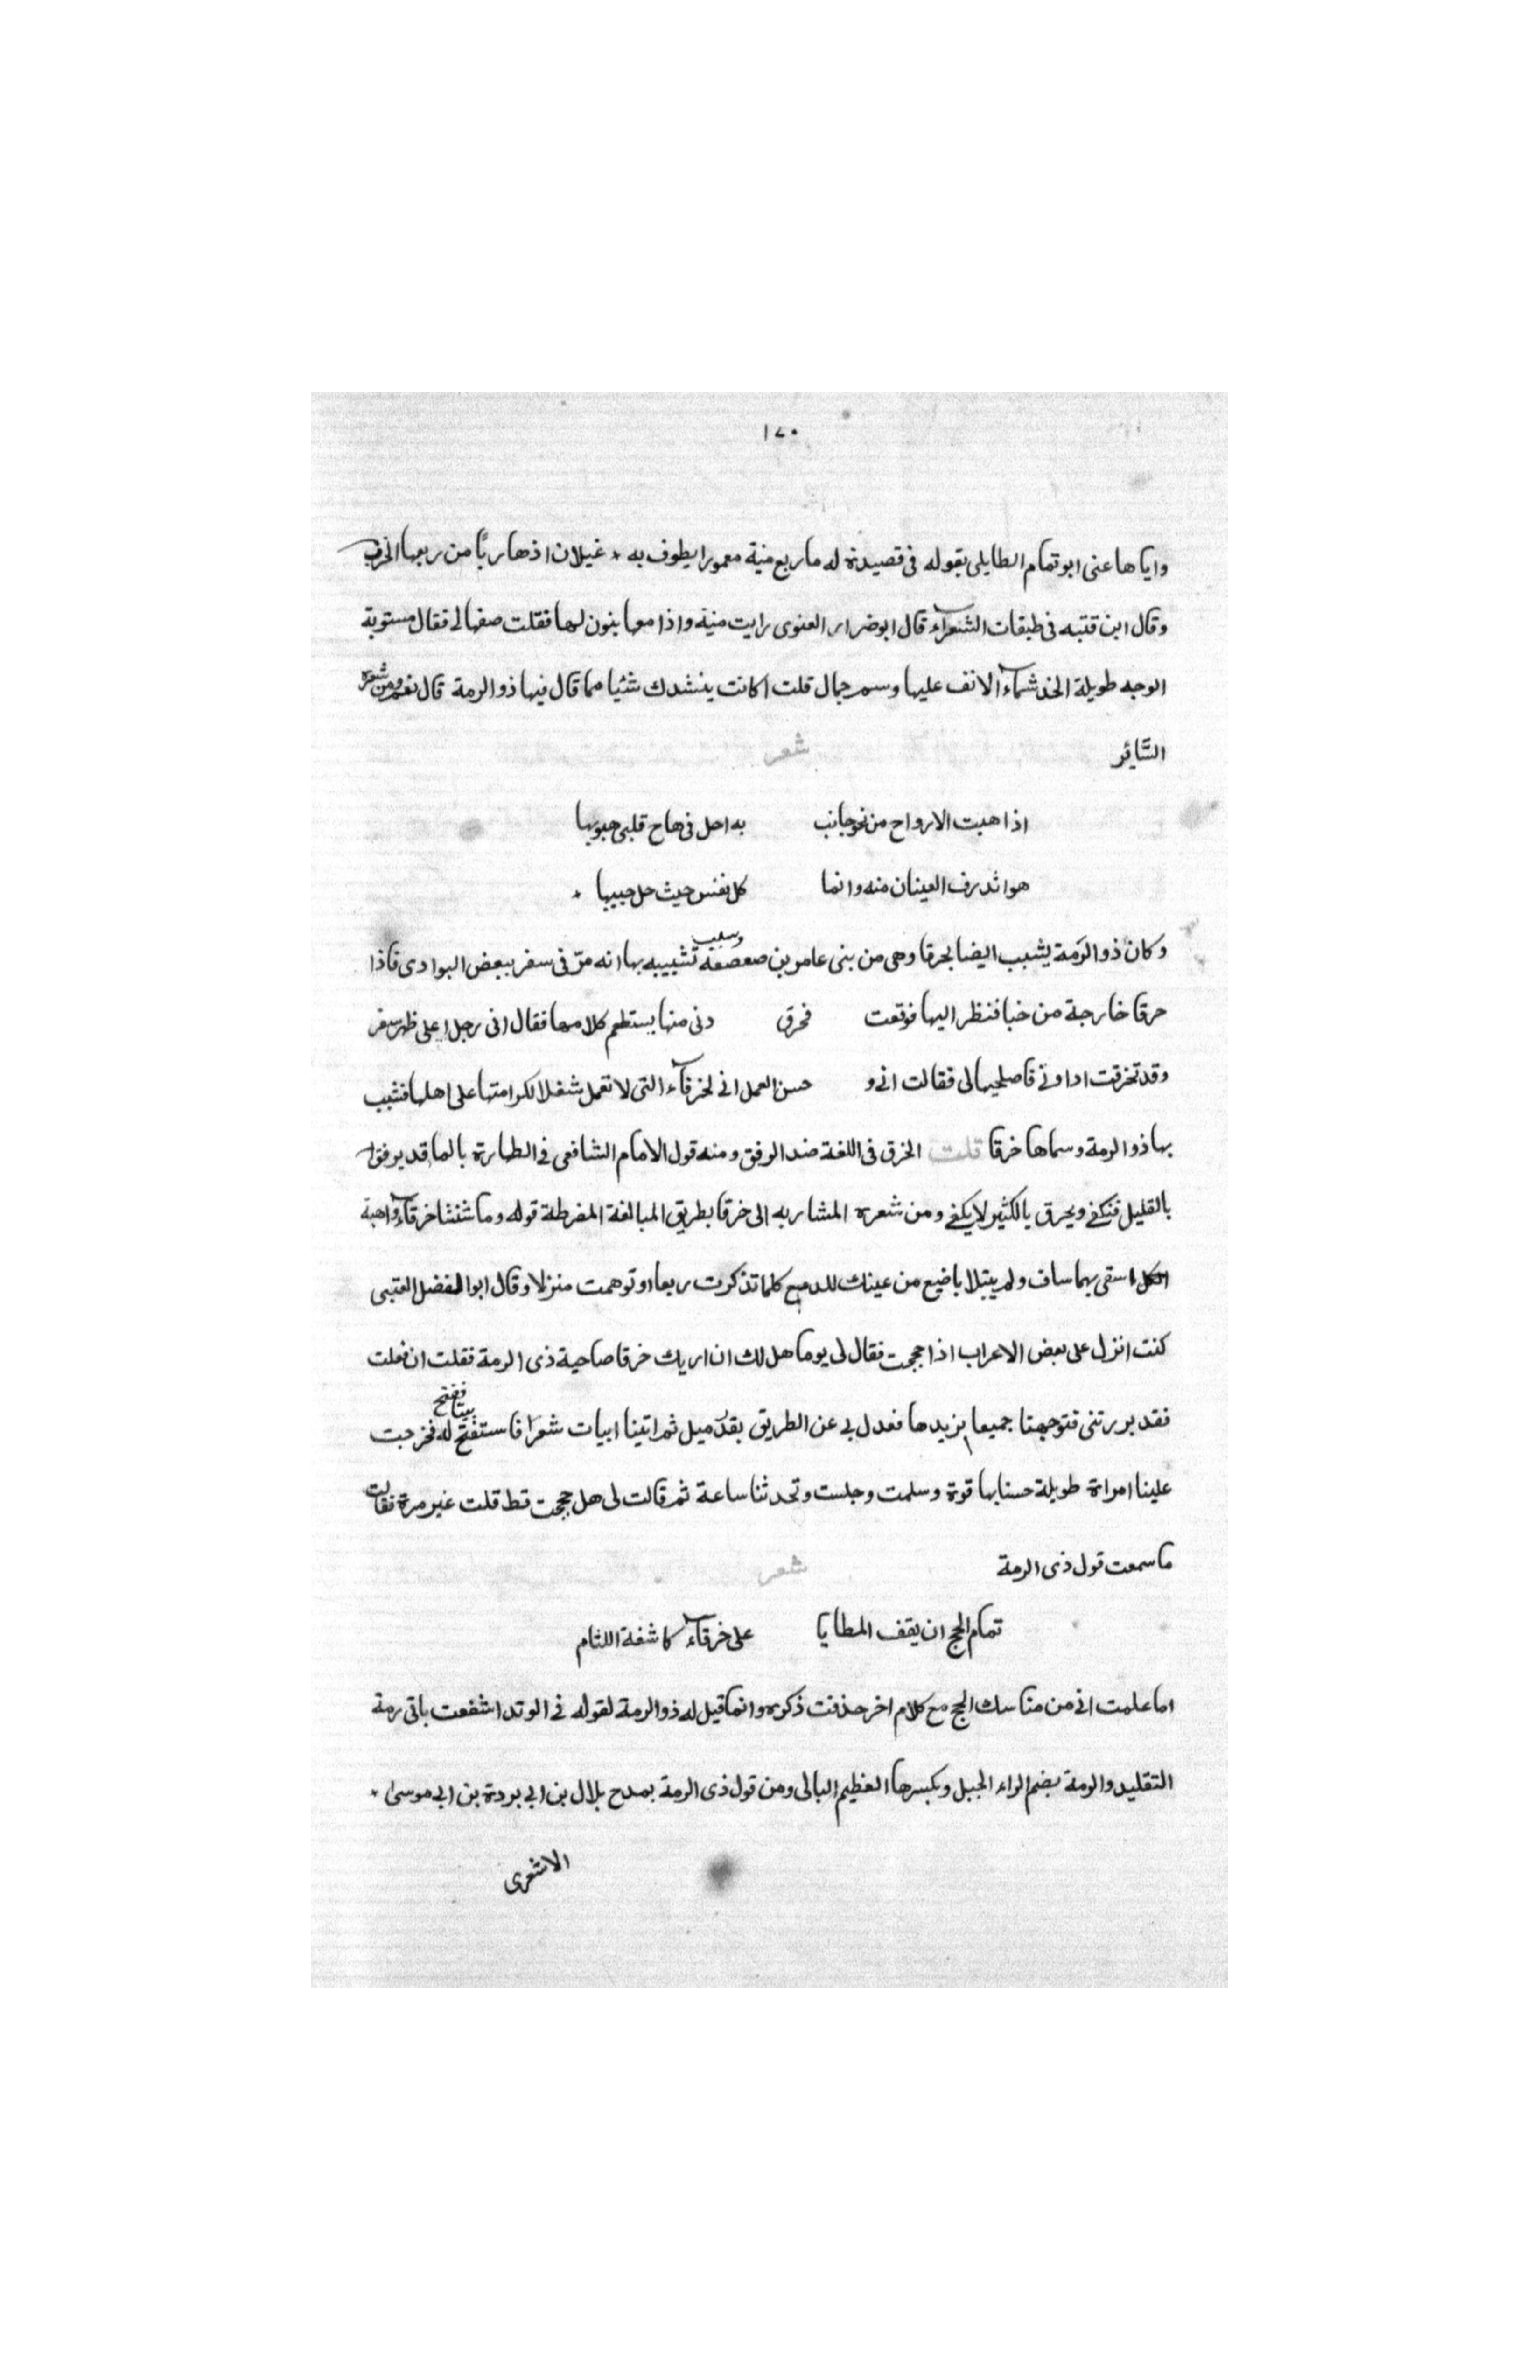 ١٧٠
واياها عنى ابو تمام الطايلى بقوله فى قصيدة له ما ربع منية معمورا يطوف به * غيلان اذ هاربًا من ربعها الخرب
وقال ابن قتبه فى طبقات الشعراء قال ابو ضرار العنوى رايت منية واذا معها بنون لها فقلت صفها لى فقال مستوية
الوجه طويلة الخد شماء الانف عليها وسم جمال قلت اكانت ينشدك شئيا مما قال فيها ذو الرمة قال نعم ومن شعره
السَّائر شعر
اذا هبت الارواح من نحو جانب به احل فى هاج قلبى هبوبها
هوا تدرف العينان منه وانما كل نفس حيث حل حبيبها *
وكان ذو الرمة يشبب ايضا بحرقا وهى من بنى عامر بن صعصعة وسبب تشبيبه بها انه مرّ فى سفر ببعض البوادى فاذا
حرقا خارجة من خبا فنظر اليها فوقعت فحرق دنى منها يستطعم كلامها فقال انى رجل على ظهر سفر
وقد تخرقت اداوتى فاصلحيها لى فقالت انى و حسن العمل انى لخرقاء التى لا تعمل شغلا لكرامتها على اهلها فشبب
بها ذو الرمة وسماها خرقا قلت الخرق فى اللغة ضد الرفق ومنه قول الامام الشافعى فى الطهارة بالما قد يرفق
بالقليل فتكفى ويحرق بالكثير لا يكفى ومن شعره المشار به الى خرقا بطريق المبالغة المفرطة قوله وما شنتا خرقاء واهبة
الكلا سقى بهما ساف ولم يتبلا باضيع من عينك للدمع كلما تذكرت ربعا او توهمت منزلا وقال ابو الفضل العتبى
كنت انزل على بعض الاعراب اذا حججت فقال لى يوما هل لك ان اريك خرقا صاحبة ذى الرمة فقلت ان فعلت
فقد بررتنى فتوجهنا جميعا يزيدها فعدل بى عن الطريق بقدر ميل ثم اتينا ابيات شعر فاستفتح بيتا ففتح له فخرجت
علينا امراة طويلة حسنا بها قوة وسلمت وجلست وتحدثنا ساعة ثم قالت لى هل حججت قط قلت غير مرة فقالت
ما سمعت قول ذى الرمة شعر
تمام الحج ان يقف المطايا على خرقاء كاشفة اللثام
اما علمت انى من مناسك الحج مع كلام اخر حذفت ذكره وانما قيل له ذو الرمة لقوله فى الوتد اشفعت باقى رمة
التقليد والرمة بضم الراء الجبل وبكسرها العظيم البالى ومن قول ذى الرمة بمدح بلال بن ابى بردة بن ابى موسى *
الاشعرى